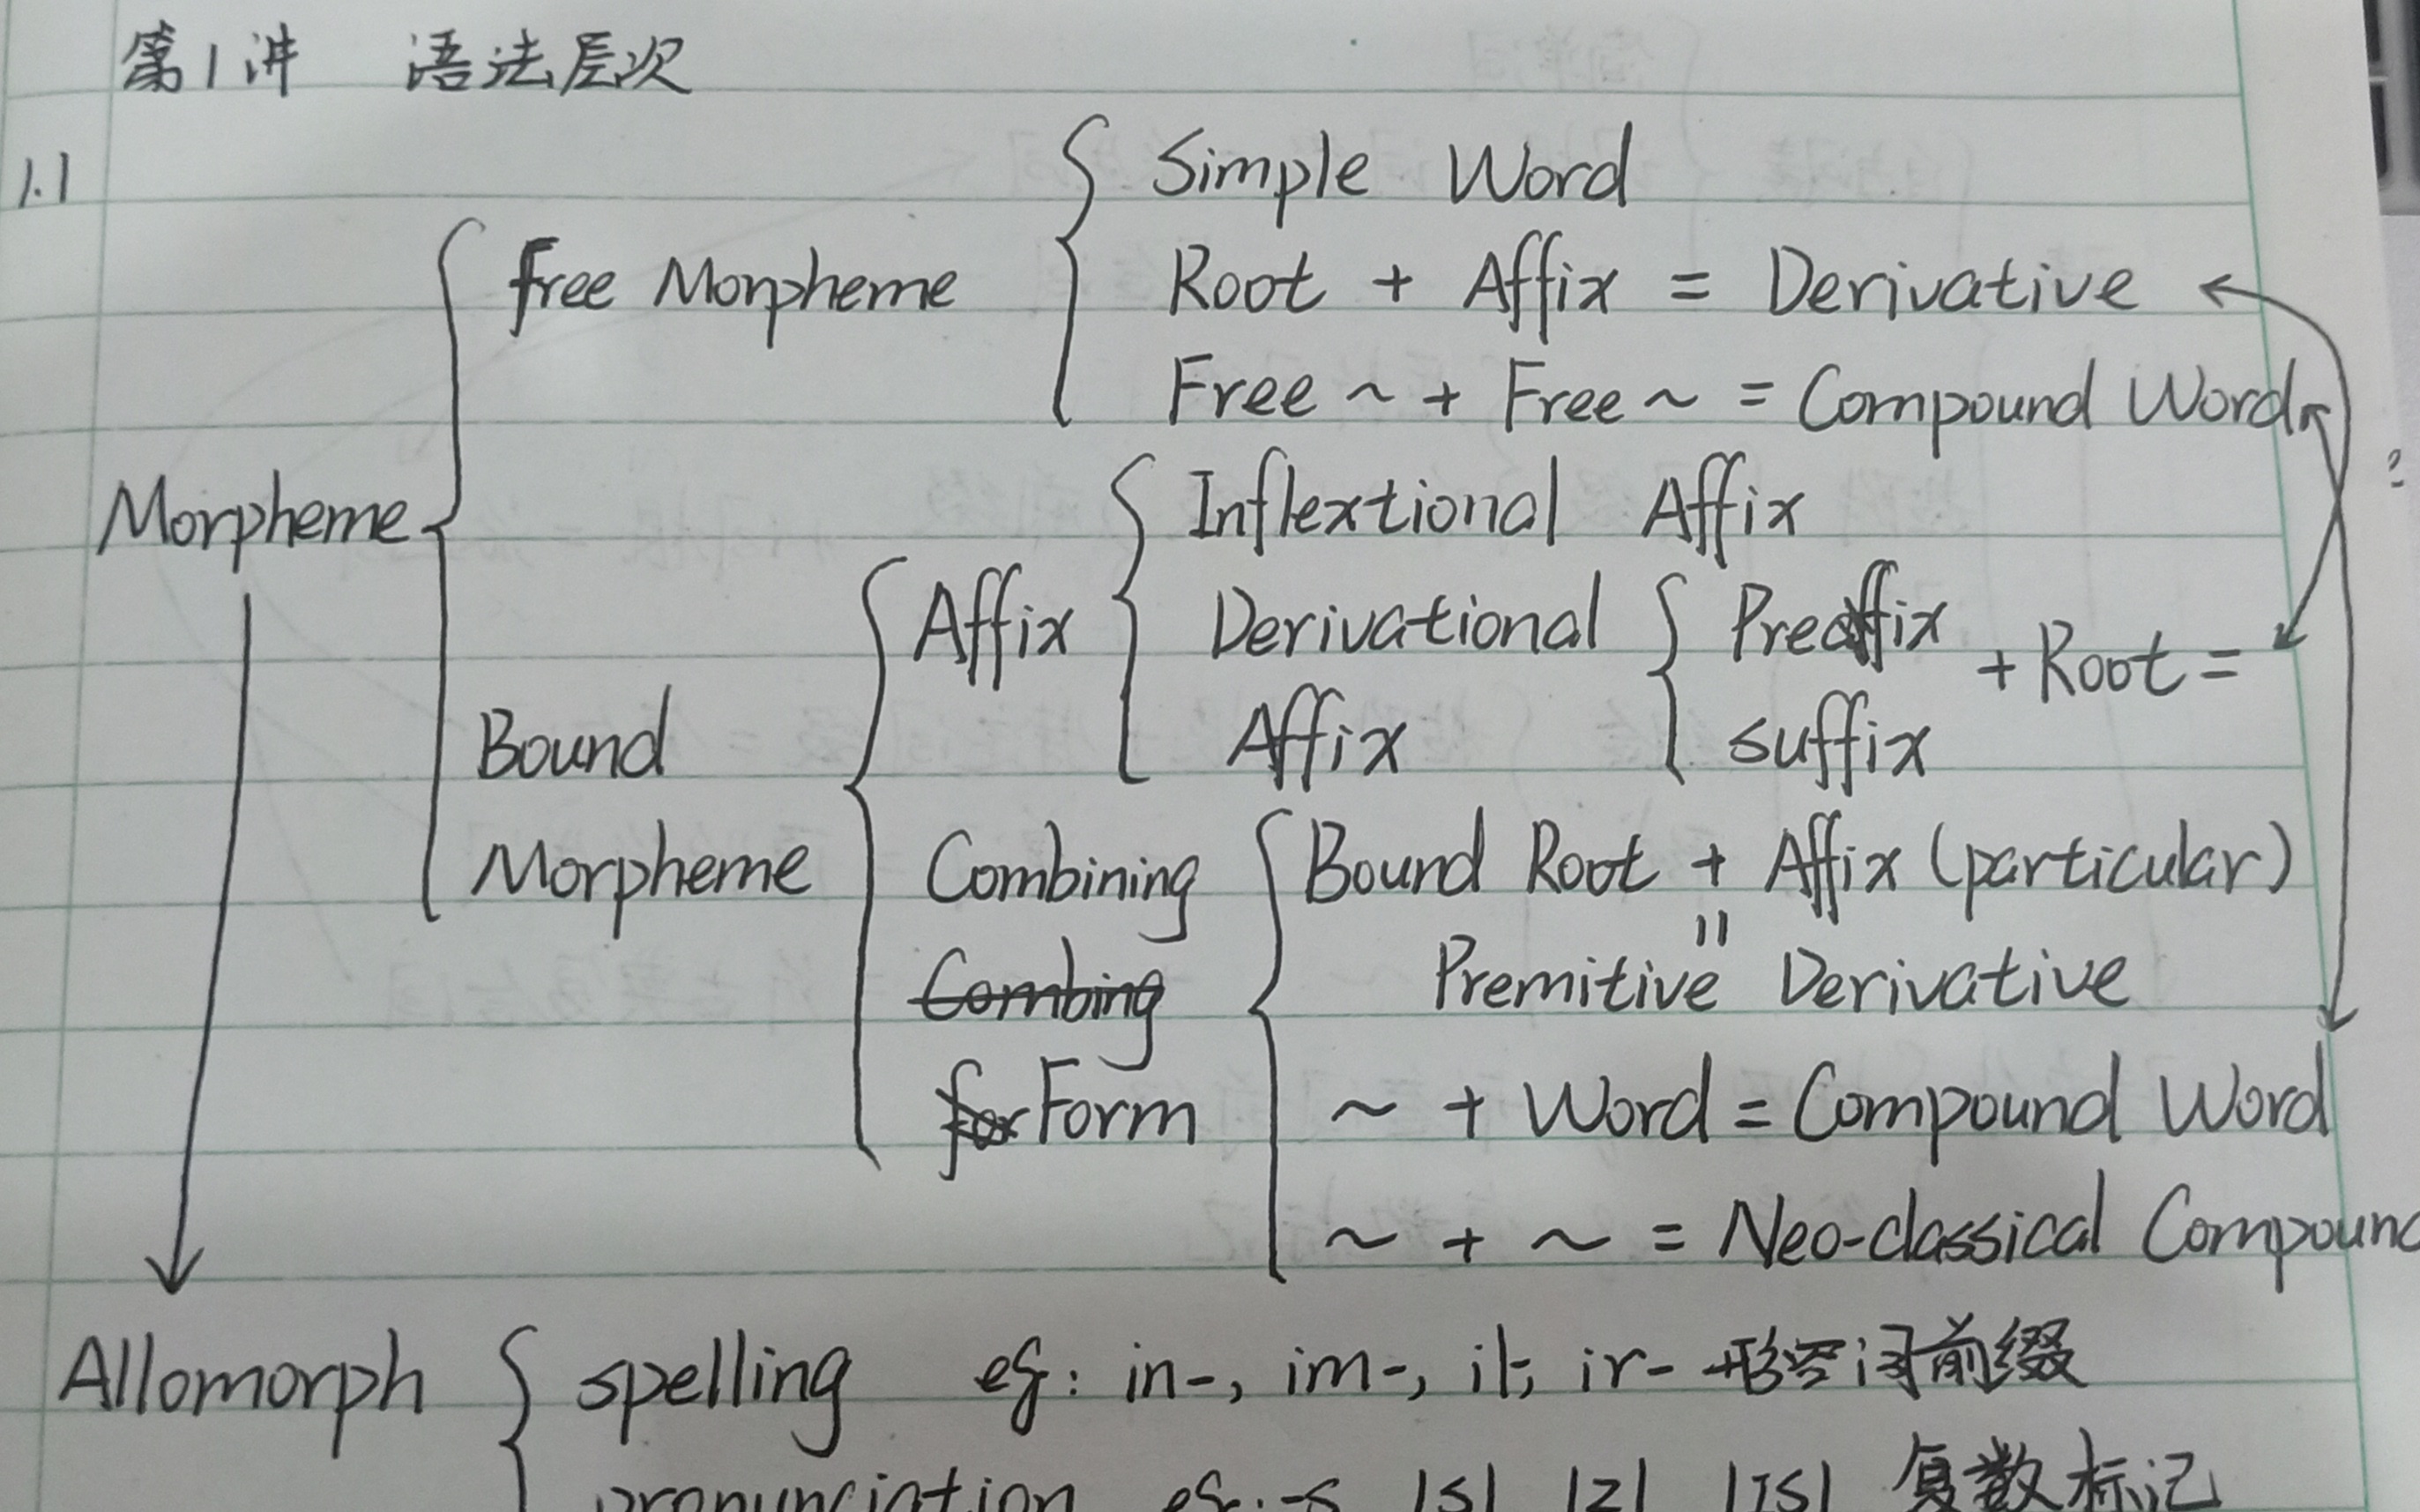 第1讲 语法层次
1.1
Simple Word
free Morpheme Root + Affix = Derivative
Free ~ + Free ~ = Compound Word
Morpheme Inflextional Affix ?
Affix Derivational Preaffix + Root =
Bound Affix suffix
Morpheme Combining Bound Root + Affix (particular)
=
Combing Premitive Derivative
for Form ~ + Word = Compound Word
~ + ~ = Neo-classical Compound
Allomorph spelling eg: in-, im-, il-, ir- 形容词前缀
pronunciation eg: -s |s| |z| |ɪs| 复数标记